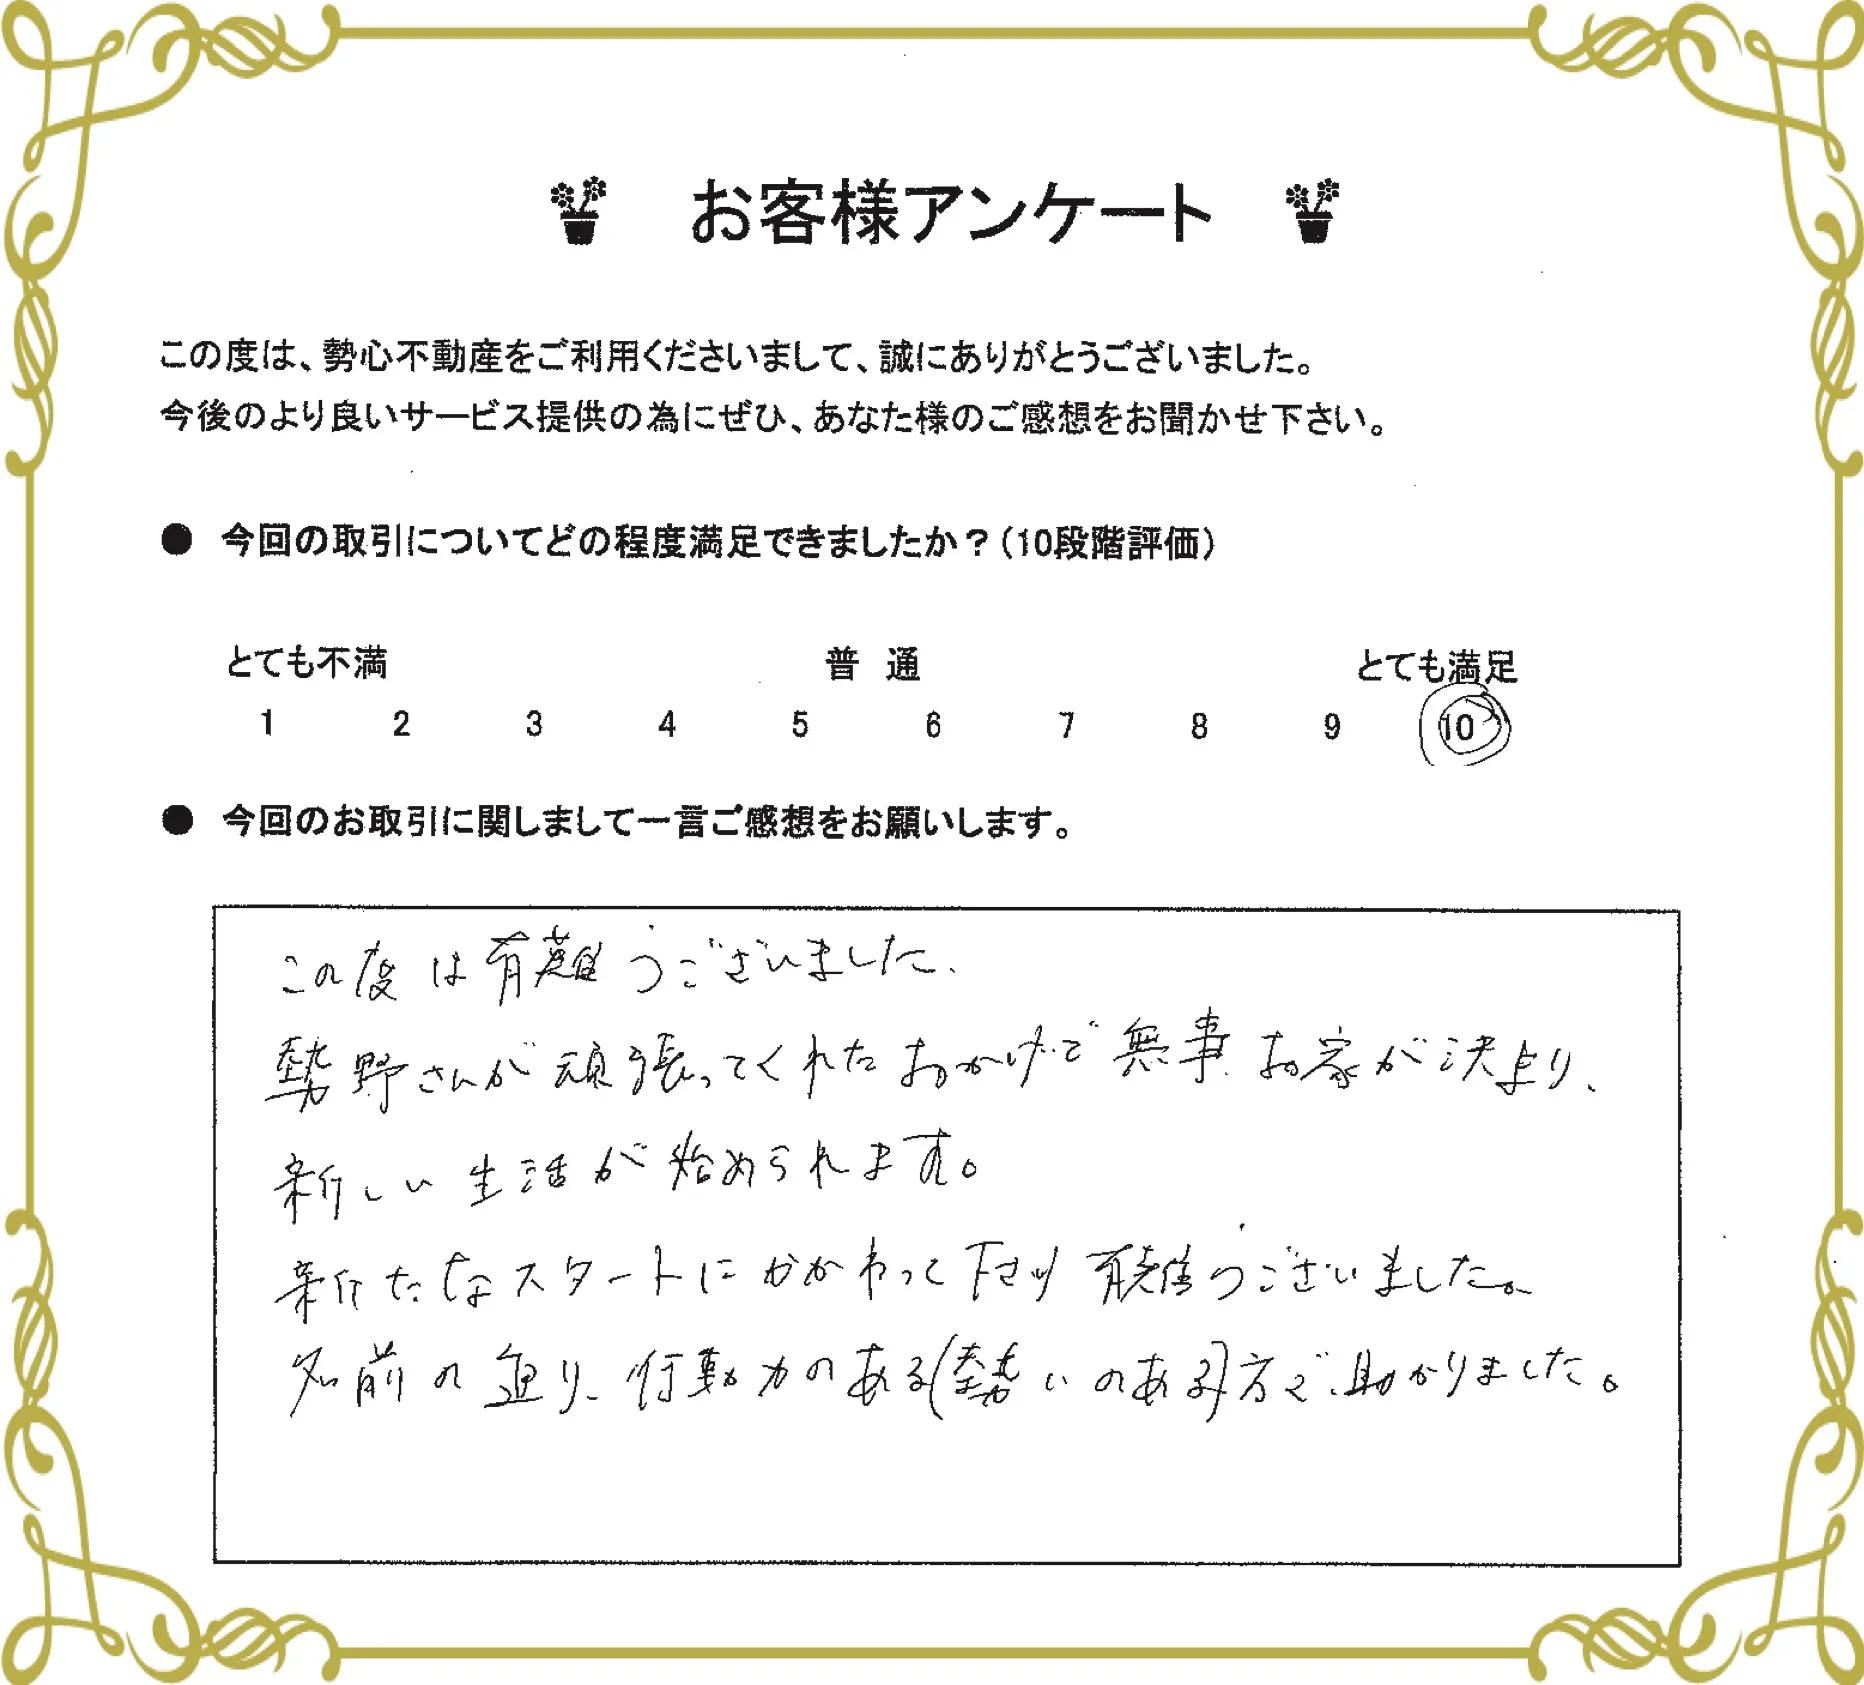 お客様アンケート
この度は、勢心不動産をご利用くださいまして、誠にありがとうございました。
今後のより良いサービス提供の為にぜひ、あなた様のご感想をお聞かせ下さい。
● 今回の取引についてどの程度満足できましたか？（10段階評価）
とても不満 普 通 とても満足
1 2 3 4 5 6 7 8 9 10
● 今回のお取引に関しまして一言ご感想をお願いします。
この度は有難うございました、
勢野さんが頑張ってくれたおかげで無事お家が決まり、
新しい生活が始められます。
新たなスタートにかかわって下さり有難うございました。
名前の通り、行動力のある(勢いのある)方で助かりました。